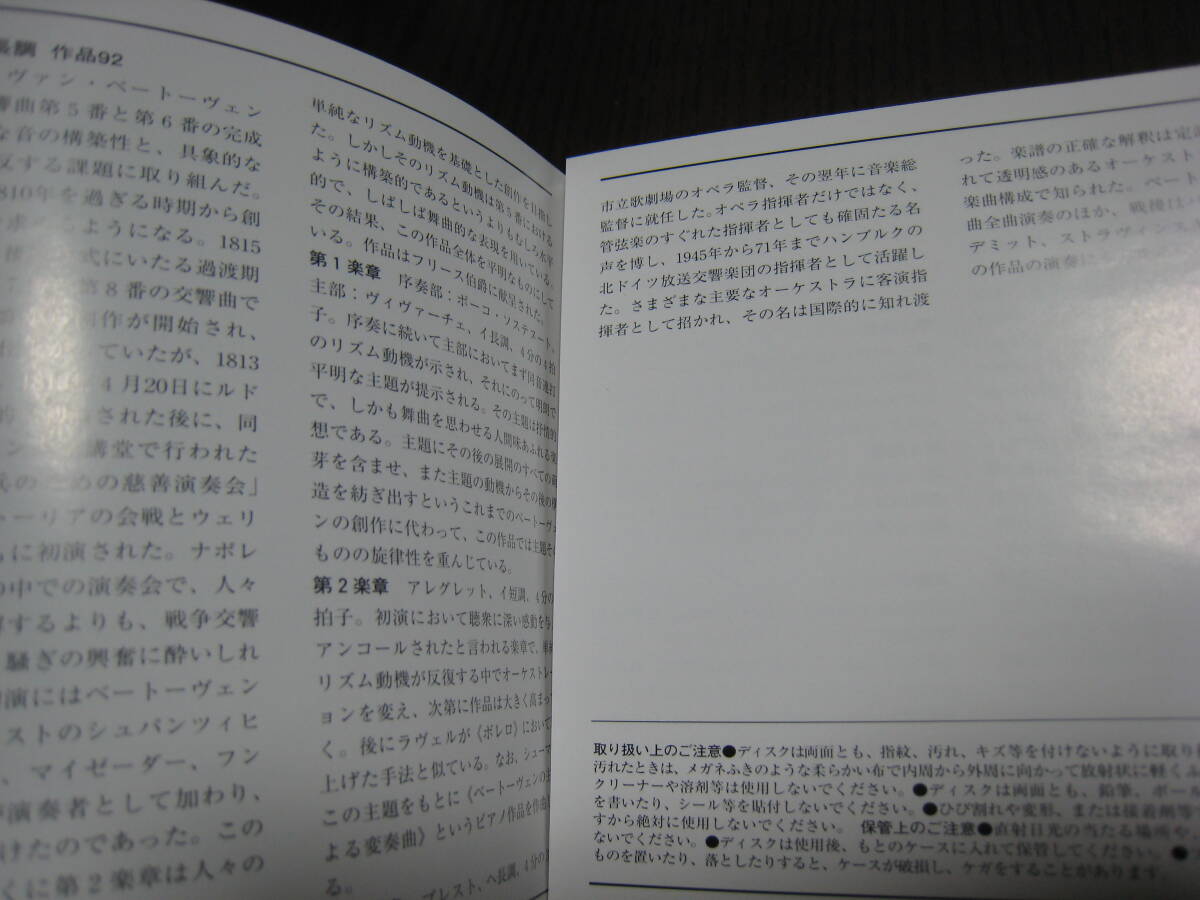 長調 作品92
ヴァン・ベートーヴェン
響曲第5番と第6番の完成
な音の構築性と、具象的な
反する課題に取り組んだ。
1810年を過ぎる時期から創
ようになる。1815
式にいたる過渡期
第8番の交響曲で
創作が開始され、
していたが、1813
4月20日にルド
された後に、同
講堂で行われた
兵のための慈善演奏会」
トーリアの会戦とウェリ
もに初演された。ナポレ
の中での演奏会で、人々
するよりも、戦争交響
騒ぎの興奮に酔いしれ
初演にはベートーヴェン
ストのシュパンツィヒ
、マイゼーダー、フン
演奏者として加わり、
けたのであった。この
くに第2楽章は人々の
単純なリズム動機を基礎とした創作を目指し
た。しかしそのリズム動機は第5番における
ように構築的であるというよりもむしろ水平
的で、しばしば舞曲的な表現を用いている。
その結果、この作品全体を平明なものにして
いる。作品はフリース伯爵に献呈された。
第1楽章 序奏部：ポーコ・ソステヌート、
主部：ヴィヴァーチェ、イ長調、4分の4拍
子。序奏に続いて主部においてまず同音連打
のリズム動機が示され、それにのって明朗で
平明な主題が提示される。その主題は抒情的
で、しかも舞曲を思わせる人間味あふれる楽
想である。主題にその後の展開のすべての萌
芽を含ませ、また主題の動機からその後の構
造を紡ぎ出すというこれまでのベートーヴェ
ンの創作に代わって、この作品では主題その
ものの旋律性を重んじている。
第2楽章 アレグレット、イ短調、4分の
拍子。初演において聴衆に深い感動を与
アンコールされたと言われる楽章で、単純
リズム動機が反復する中でオーケストレー
ョンを変え、次第に作品は大きく高まって
く。後にラヴェルが《ボレロ》において
上げた手法と似ている。なお、シューマ
この主題をもとに《ベートーヴェンの主
よる変奏曲》というピアノ作品を作曲
る。
プレスト、ヘ長調、4分の
市立歌劇場のオペラ監督、その翌年に音楽総
監督に就任した。オペラ指揮者だけではなく、
管弦楽のすぐれた指揮者としても確固たる名
声を博し、1945年から71年までハンブルクの
北ドイツ放送交響楽団の指揮者として活躍し
た。さまざまな主要なオーケストラに客演指
揮者として招かれ、その名は国際的に知れ渡
った。楽譜の正確な解釈は定
れて透明感のあるオーケスト
楽曲構成で知られた。ベート
曲全曲演奏のほか、戦後は
デミット、ストラヴィンス
の作品の演奏に
取り扱い上のご注意●ディスクは両面とも、指紋、汚れ、キズ等を付けないように取り
汚れたときは、メガネふきのような柔らかい布で内周から外周に向かって放射状に軽くふ
クリーナーや溶剤等は使用しないでください。●ディスクは両面とも、鉛筆、ボール
を書いたり、シール等を貼付しないでください。●ひび割れや変形、または接着剤等
すから絶対に使用しないでください。 保管上のご注意●直射日光の当たる場所や、
ないでください。●ディスクは使用後、もとのケースに入れて保管してください。●
ものを置いたり、落としたりすると、ケースが破損し、ケガをすることがあります。